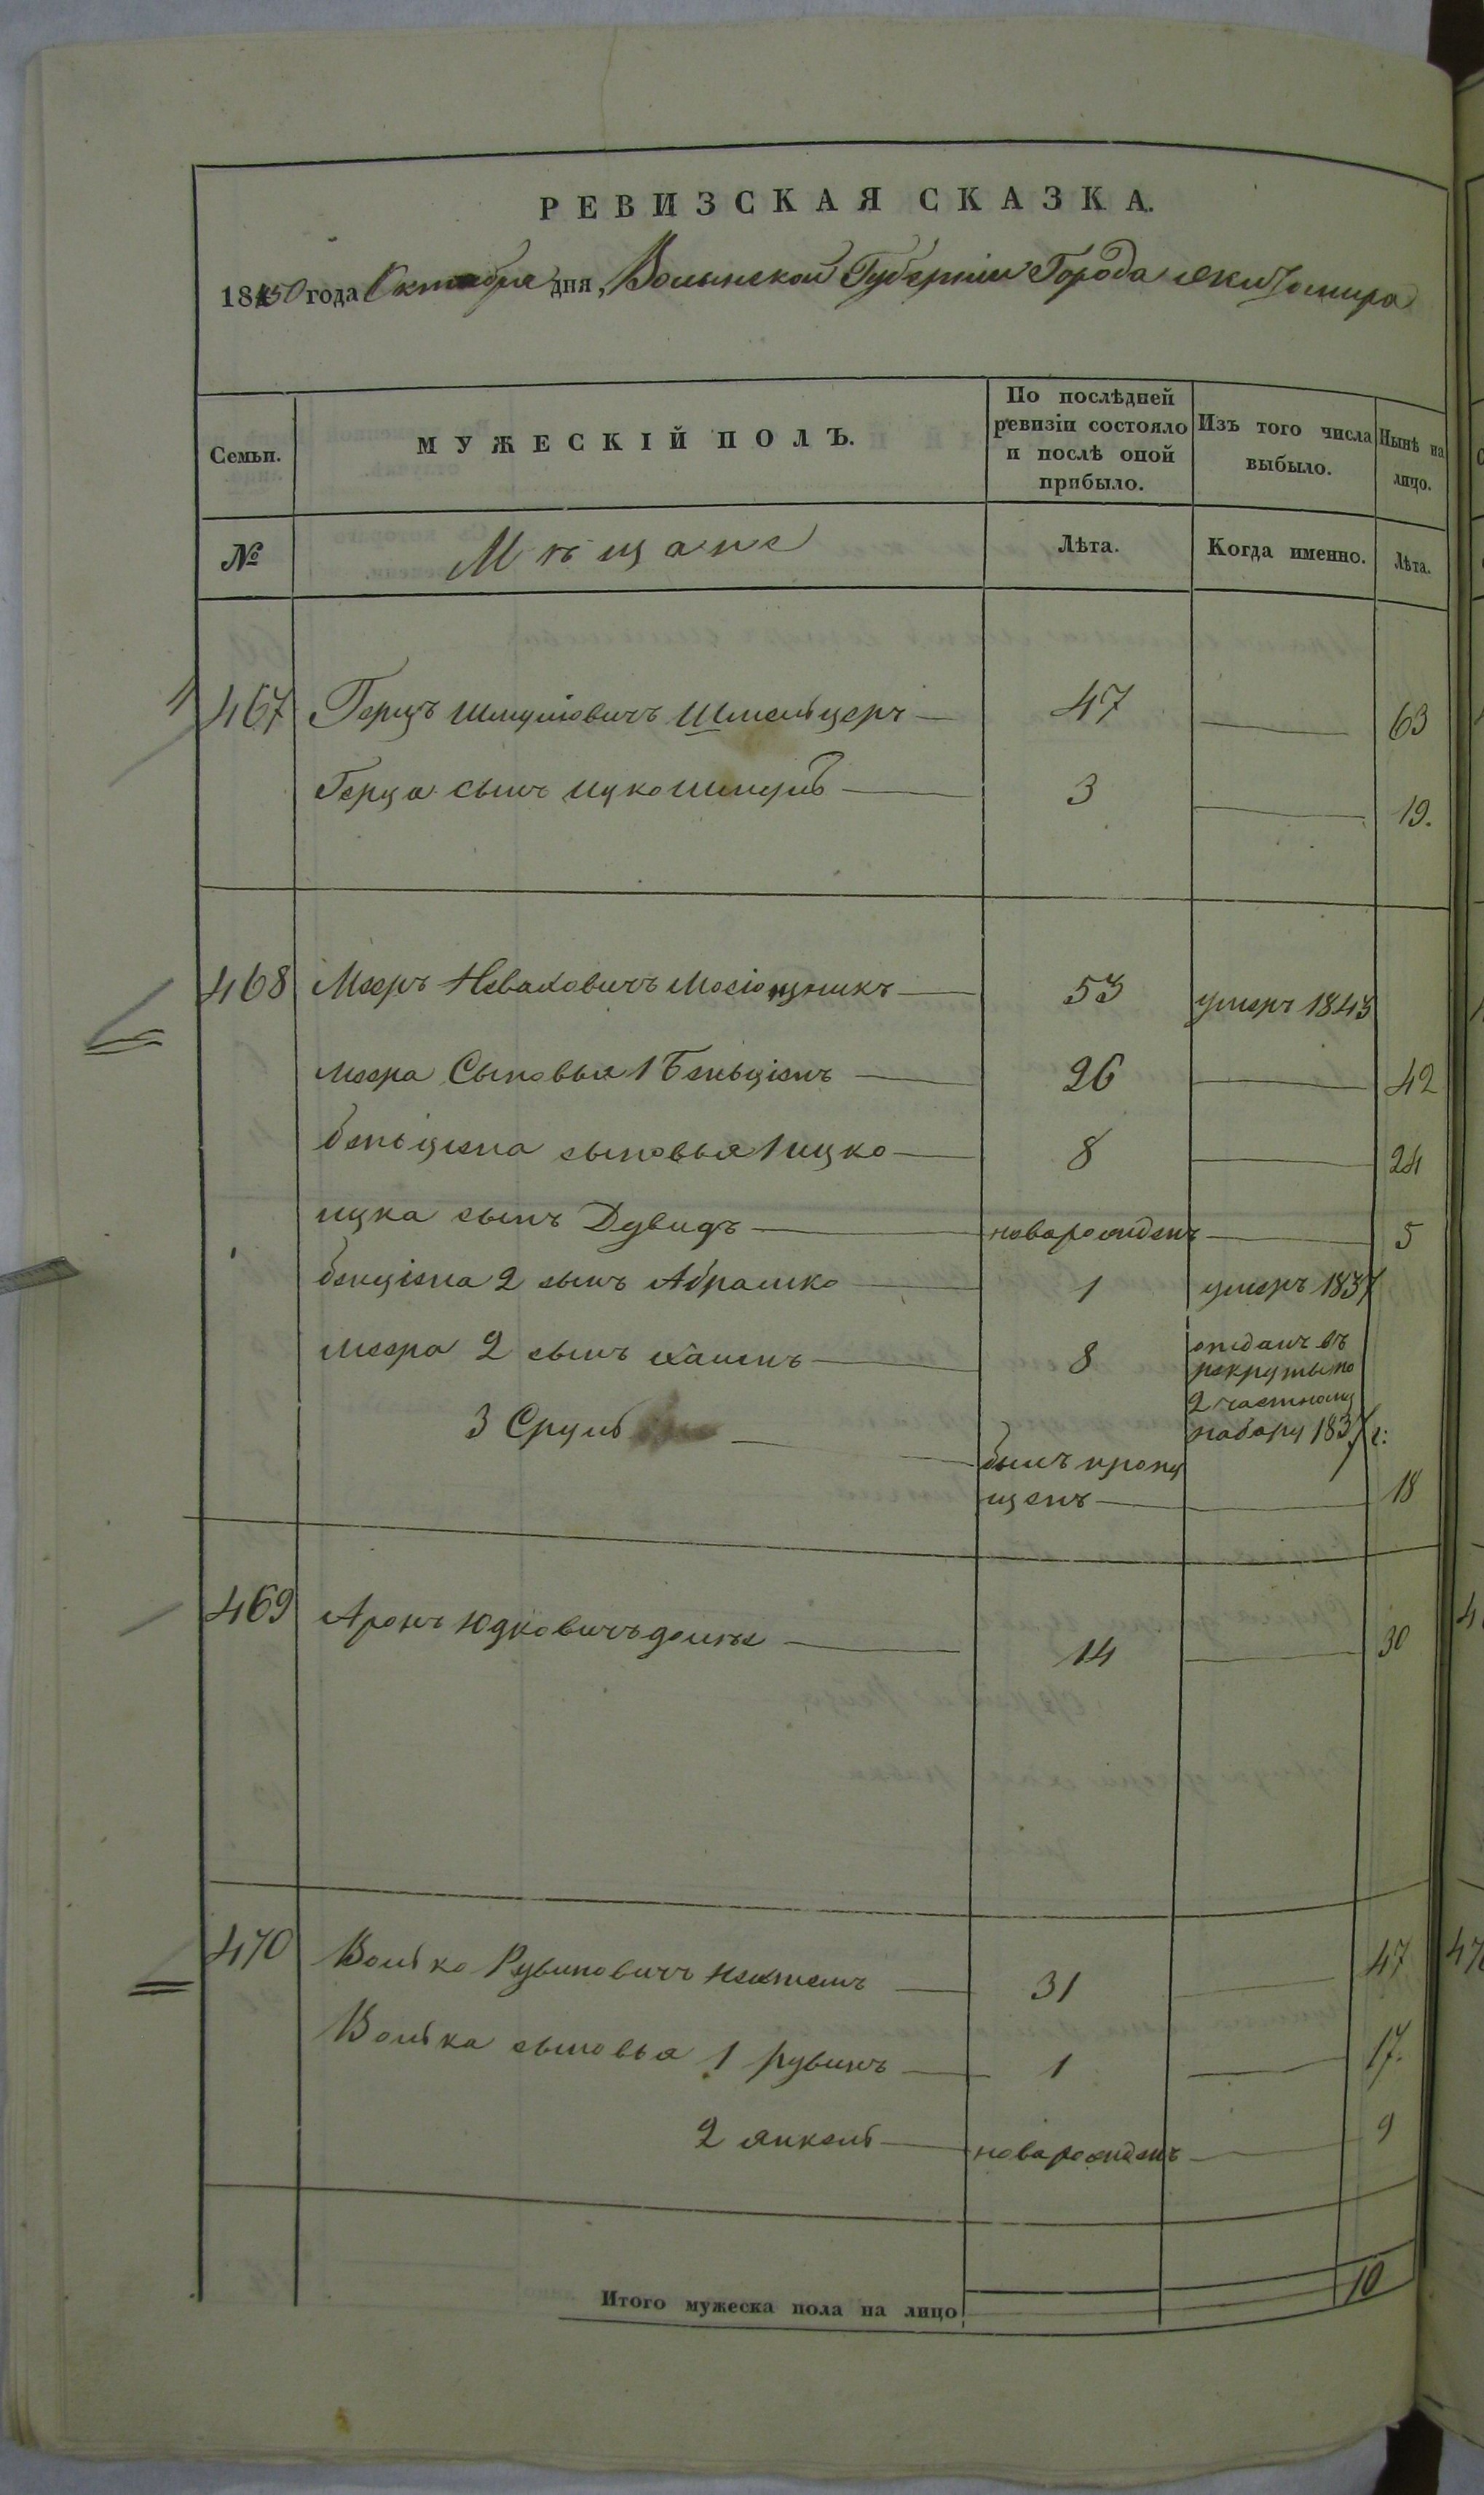 РЕВИЗСКАЯ СКАЗКА.
1850 года Октября дня, Волынской Губернии Города Житомира
Семьи.
МУЖЕСКІЙ ПОЛЪ.
По послѣдней ревизіи состояло и послѣ оной прибыло.
Изъ того числа выбыло.
Нынѣ на лицо.
№
Мѣщане
Лѣта.
Когда именно.
Лѣта.
467 Герцъ Шмулiовичъ Шмельцеръ 47 63
Герца сынъ Ицко Шмуль 3 19.
468 Мееръ Невахович Мосiонзникъ 53 умеръ 1843
Меера Сыновья 1 Беньцiенъ 26 42
беньциена сыновья 1 ицко 8 24
ицка сынъ Дувидъ новарожденъ 5
бенцiена 2 сынъ Абрашко 1 умеръ 1837
Меера 2 сынъ 8 отданъ въ
рекруты по
2 частному
набору 1837 г:
3 Сруль
былъ пропу
щенъ 18
469 Аронъ Юдковичъ 14 30
470 Волько Рувиновичъ 31 47
Волька сыновья 1 рувинъ 1 17.
2 янкель новарожденъ 9
Итого мужеска пола на лицо 10